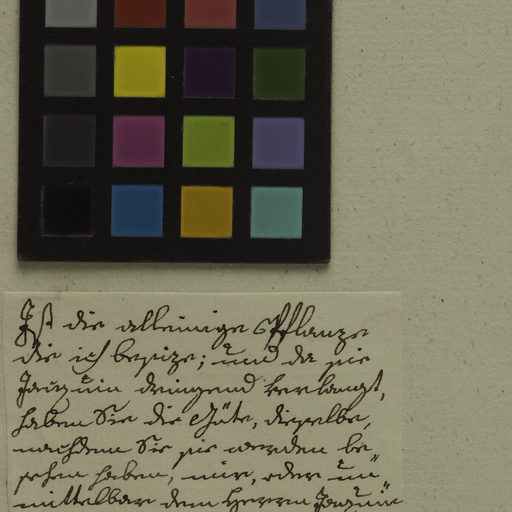 Ist die alleinige Pflanze
die ich besize; und da sie
Jacquin dringend verlangt,
haben Sie die Güte, dieselbe,
nachdem Sie sie werden be„
sehen haben, mir, oder un„
mittelbar dem Herrn Jacquin